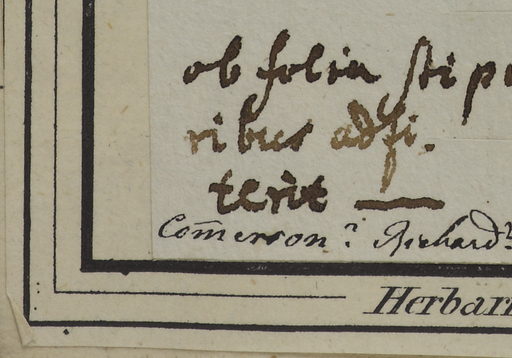 ob folia stipu
ribus adfi.
terit —
Com̄erson.? Richard
Herbar